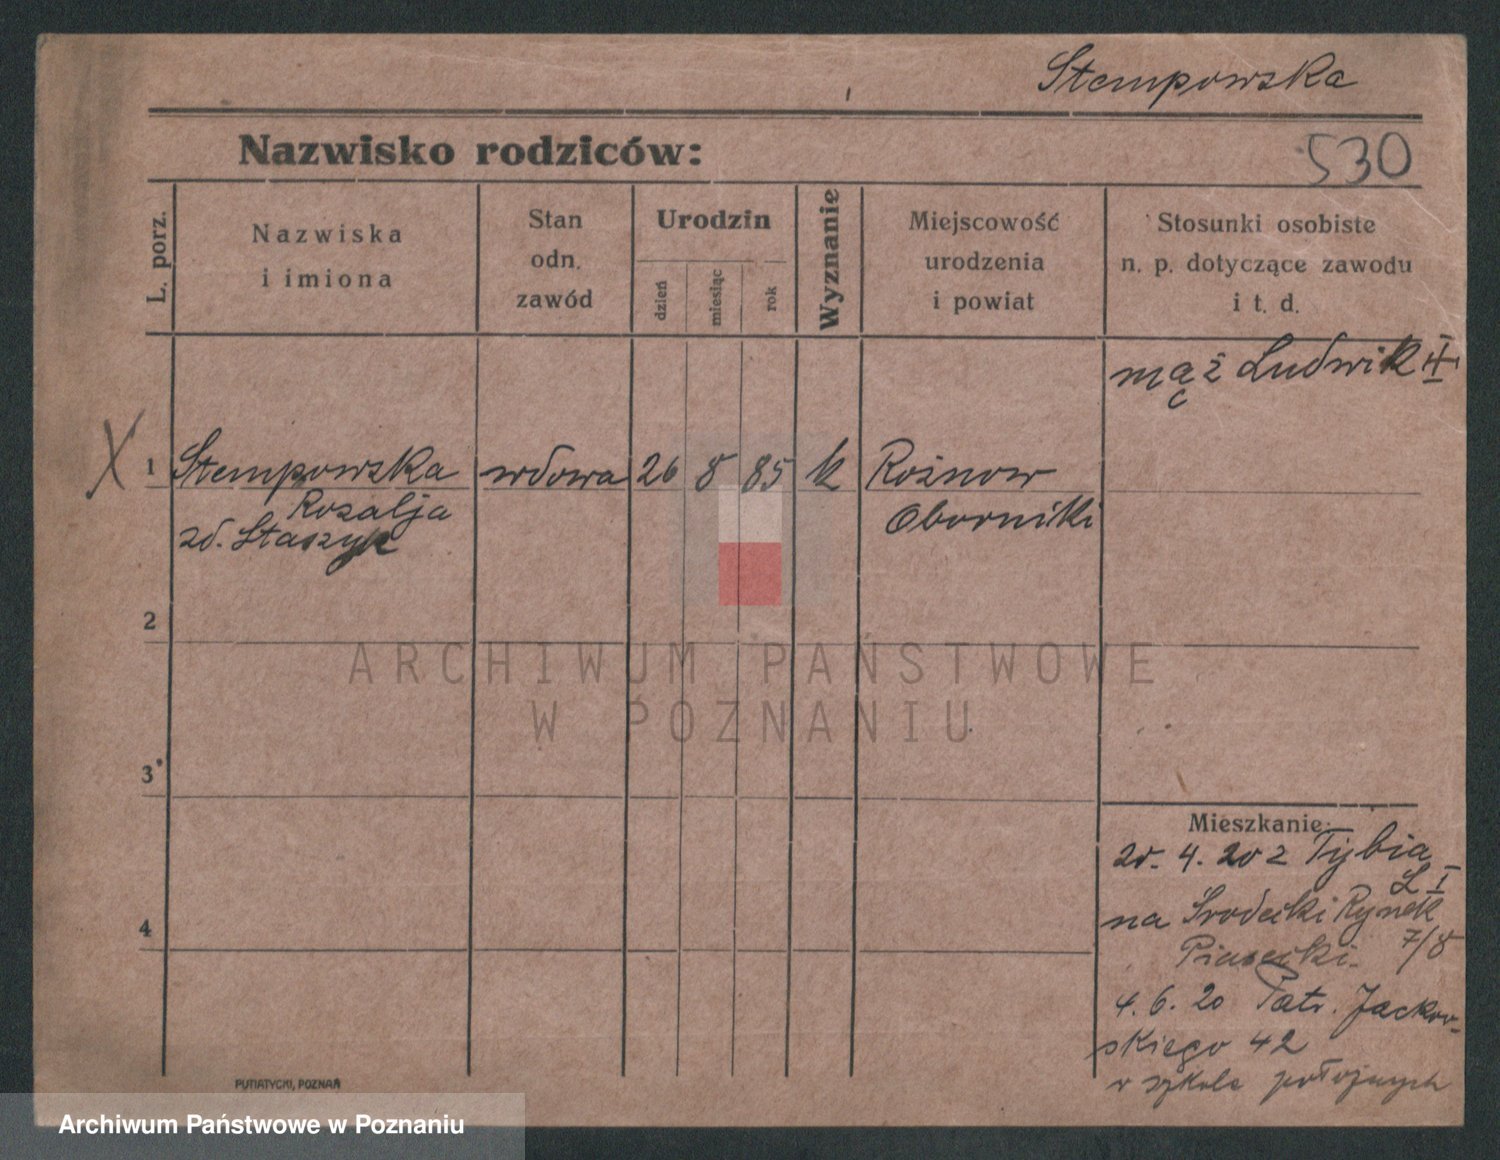 Stempowska
Nazwisko rodziców:
530
L. porz.
Nazwiska
i imiona
Stan
odn.
zawód
Urodzin
dzień
miesiąc
rok
Wyznanie
Miejscowość
urodzenia
i powiat
Stosunki osobiste
n. p. dotyczące zawodu
i t. d.
mąż Ludwik
X 1 Stempowska wdowa 26 8 85 k Rożnow
Rozalja
Oborniki
zd. Staszyk
2
3
4
Mieszkanie:
20. 4. 20 z Tybia
na Środecki Rynek
Piasecki 7/8
4. 6. 20 Patr. Jackow-
skiego 42
w szkole położnych
PUTIATYCKI, POZNAŃ
ARCHIWUM PAŃSTWOWE
W POZNANIU
Archiwum Państwowe w Poznaniu